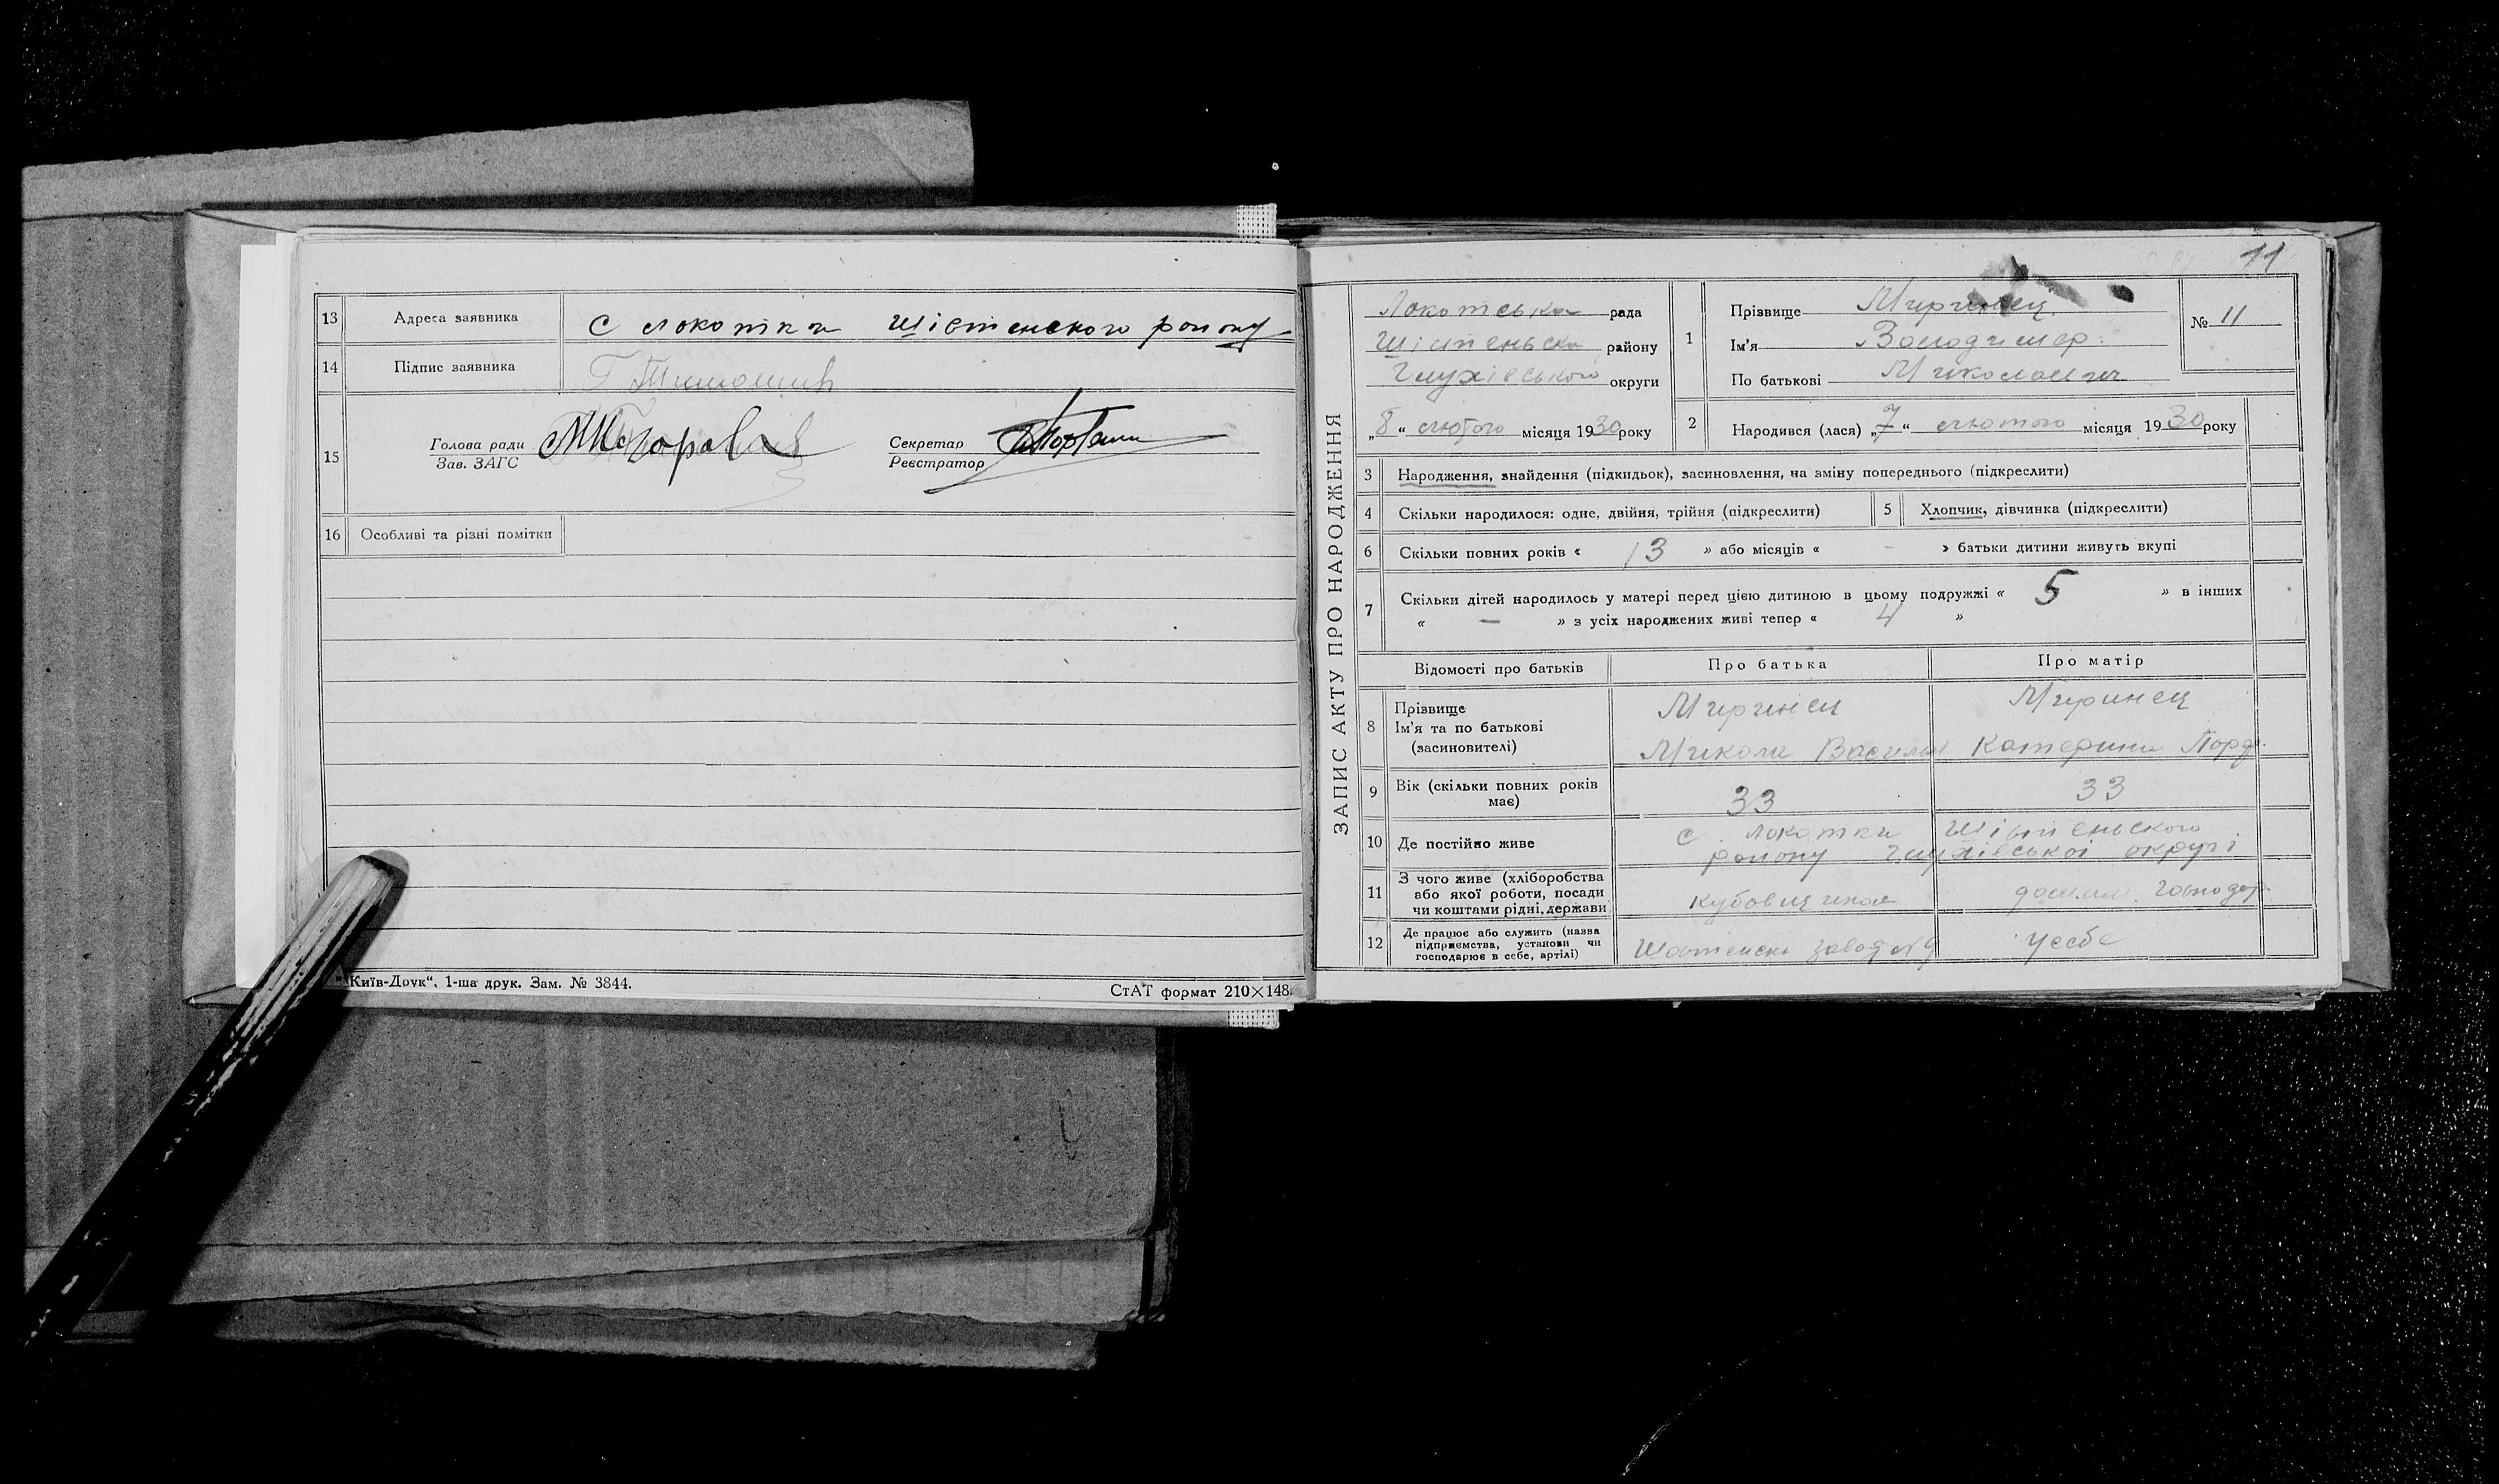 13 Адреса заявника С Локотки Шістенского району
14 Підпис заявника
15 Голова ради
Зав. ЗАГС
Секретар
Реєстратор
16 Особливі та різні помітки
"Київ-Друк", 1-ша друк. Зам. № 3844.
СтАТ формат 210×148.
11
ЗАПИС АКТУ ПРО НАРОДЖЕННЯ
Локотська рада
Шістеньска району
Глухівського округи
„8“ лютого місяця 1930 року
1 Прізвище Миринец
Ім'я Володимер
По батькові Миколаевич
№ 11
2 Народився (лася) „7“ лютого місяця 1930 року
3 Народження, знайдення (підкидьок), засиновлення, на зміну попереднього (підкреслити)
4 Скільки народилося: одне, двійня, трійня (підкреслити) 5 Хлопчик, дівчинка (підкреслити)
6 Скільки повних років « 13 » або місяців « - » батьки дитини живуть вкупі
7 Скільки дітей народилось у матері перед цією дитиною в цьому подружжі « 5 » в інших
« — » з усіх народжених живі тепер « 4 »
Відомості про батьків Про батька Про матір
8 Прізвище
Ім'я та по батькові
(засиновителі)
Миринец
Микола Васил
Миринец
Катерина
9 Вік (скільки повних років
має)
33 33
10 Де постійно живе
с. Локотки Шістеньского
району Глухівської округі
11 З чого живе (хліборобства
або якої роботи, посади
чи коштами рідні, держави
Кубовщиком
домаш. господар.
12 Де працює або служить (назва
підприємства, установи чи
господарює в себе, артілі)
завод № 9
Усебе